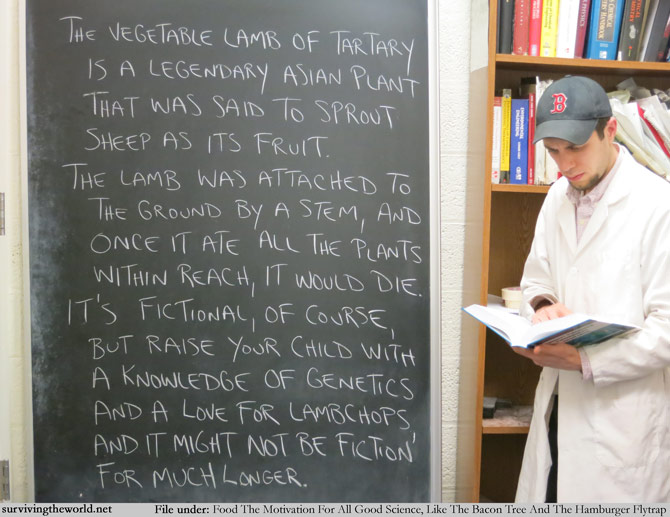 THE VEGETABLE LAMB OF TARTARY
IS A LEGENDARY ASIAN PLANT
THAT WAS SAID TO SPROUT
SHEEP AS ITS FRUIT.
THE LAMB WAS ATTACHED TO
THE GROUND BY A STEM, AND
ONCE IT ATE ALL THE PLANTS
WITHIN REACH, IT WOULD DIE.
IT'S FICTIONAL, OF COURSE,
BUT RAISE YOUR CHILD WITH
A KNOWLEDGE OF GENETICS
AND A LOVE FOR LAMBCHOPS,
AND IT MIGHT NOT BE FICTION'
FOR MUCH LONGER.
B
survivingtheworld.net File under: Food The Motivation For All Good Science, Like The Bacon Tree And The Hamburger Flytrap